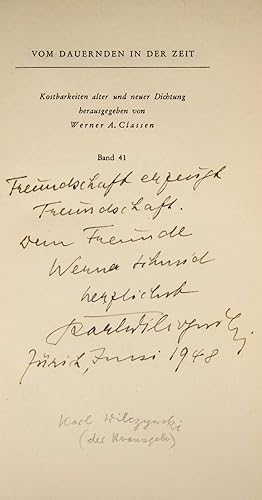 VOM DAUERNDEN IN DER ZEIT
Kostbarkeiten alter und neuer Dichtung
herausgegeben von
Werner A. Classen
Band 41
Freundschaft erzeugt
Freundschaft.
Dem Freunde
Werner Schmid
herzlichst
Karl Wilczynski.
Zürich, Juni 1948
Karl Wilczynski
(der Herausgeber)